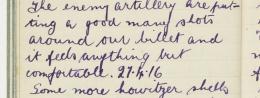 The enemy artillery are put-
ting a good many shots
around our billet and
it feels anything but
comfortable. 27.4.16
Some more howitzer shells